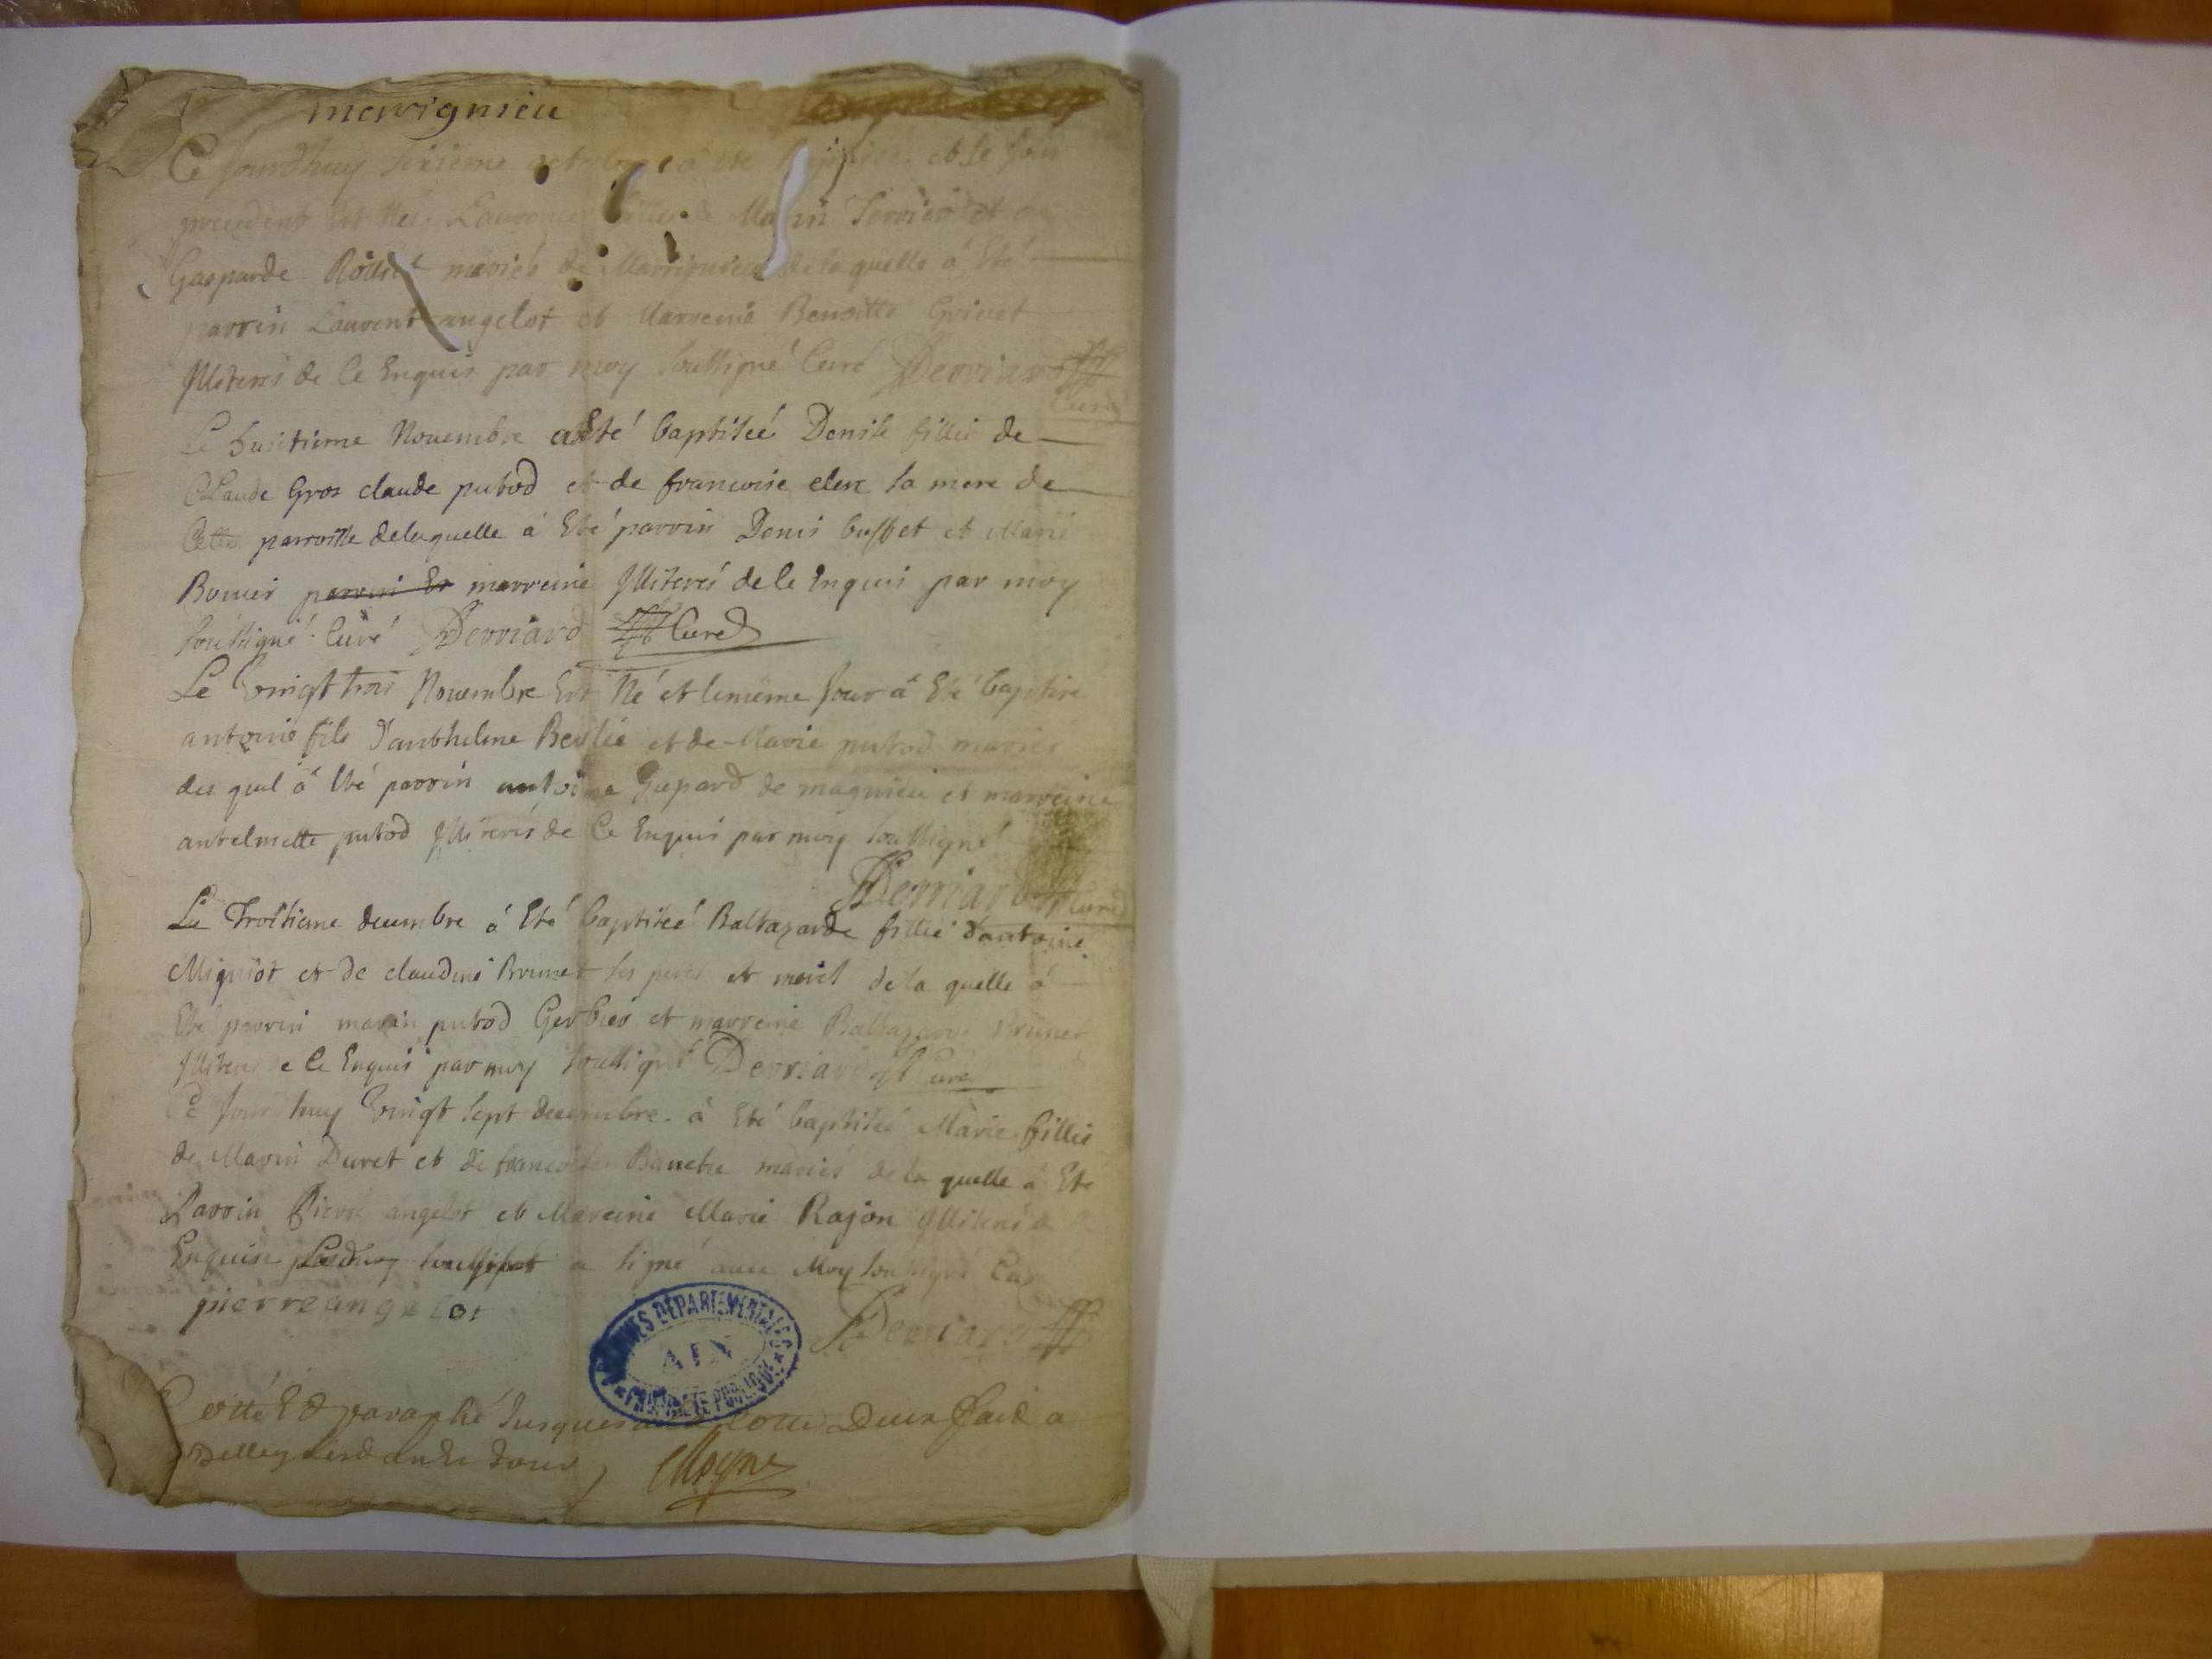 merrignieu
Ce Jourdhuy sixieme a été et le jour
precedent est Née fille de Marin et
Gasparde mariés de Marrignieu de laquelle á Eté
parrin Laurent angelot et Marreine Benoitte Grinet
Jlliterés de Ce Enquis par moy soussigné Curé Derriard
Curé
Le huitieme Novembre a Eté baptiseé Denise fillie de
Claude Gros claude putod et de francoise clerc sa mere de
Cette parroisse delaquelle á Eté parrin Denis buffet et Marie
marreine Jlliterés de Ce Enquis par moy
soussigné Curé Derriard Curé
Le Vingt trois Novembre Est Né et le méme Jour á Eté baptisé
antoine fils d'anthelme et de Marie putod mariés
du quel á Eté parrin antoine Gapard de magnieu et marreine
antelmette putod Jlliterés de Ce Enquis par moy soussigné
Derriard Curé
Le Troisieme decembre á Eté baptiseé Baltazarde fillie d'antoine
Migniot et de claudine Brunet ses peres et meres de la quelle á
Eté parrin marin putod Gerbier et marreine Baltazarde Brunet
Jlliterés de Ce Enquis par moy soussigné Derriard Curé
Ce Jourdhuy Vingt sept decembre á Eté baptiseé Marie fillie
de Marin Duret et de francoise mariés de la quelle á Eté
Parrin Pierre angelot et Marreine Marie Rajon Jlliterés de
Enquise a signé avec Moy soussigné
pierre angelot
Derriard
ARCHIVES DÉPARTEMENTALES
AIN
PROPRIÉTÉ PUBLIQUE
Cotté Et paraphé Jusques Cotte Deux Faid a
Belley
Moyne